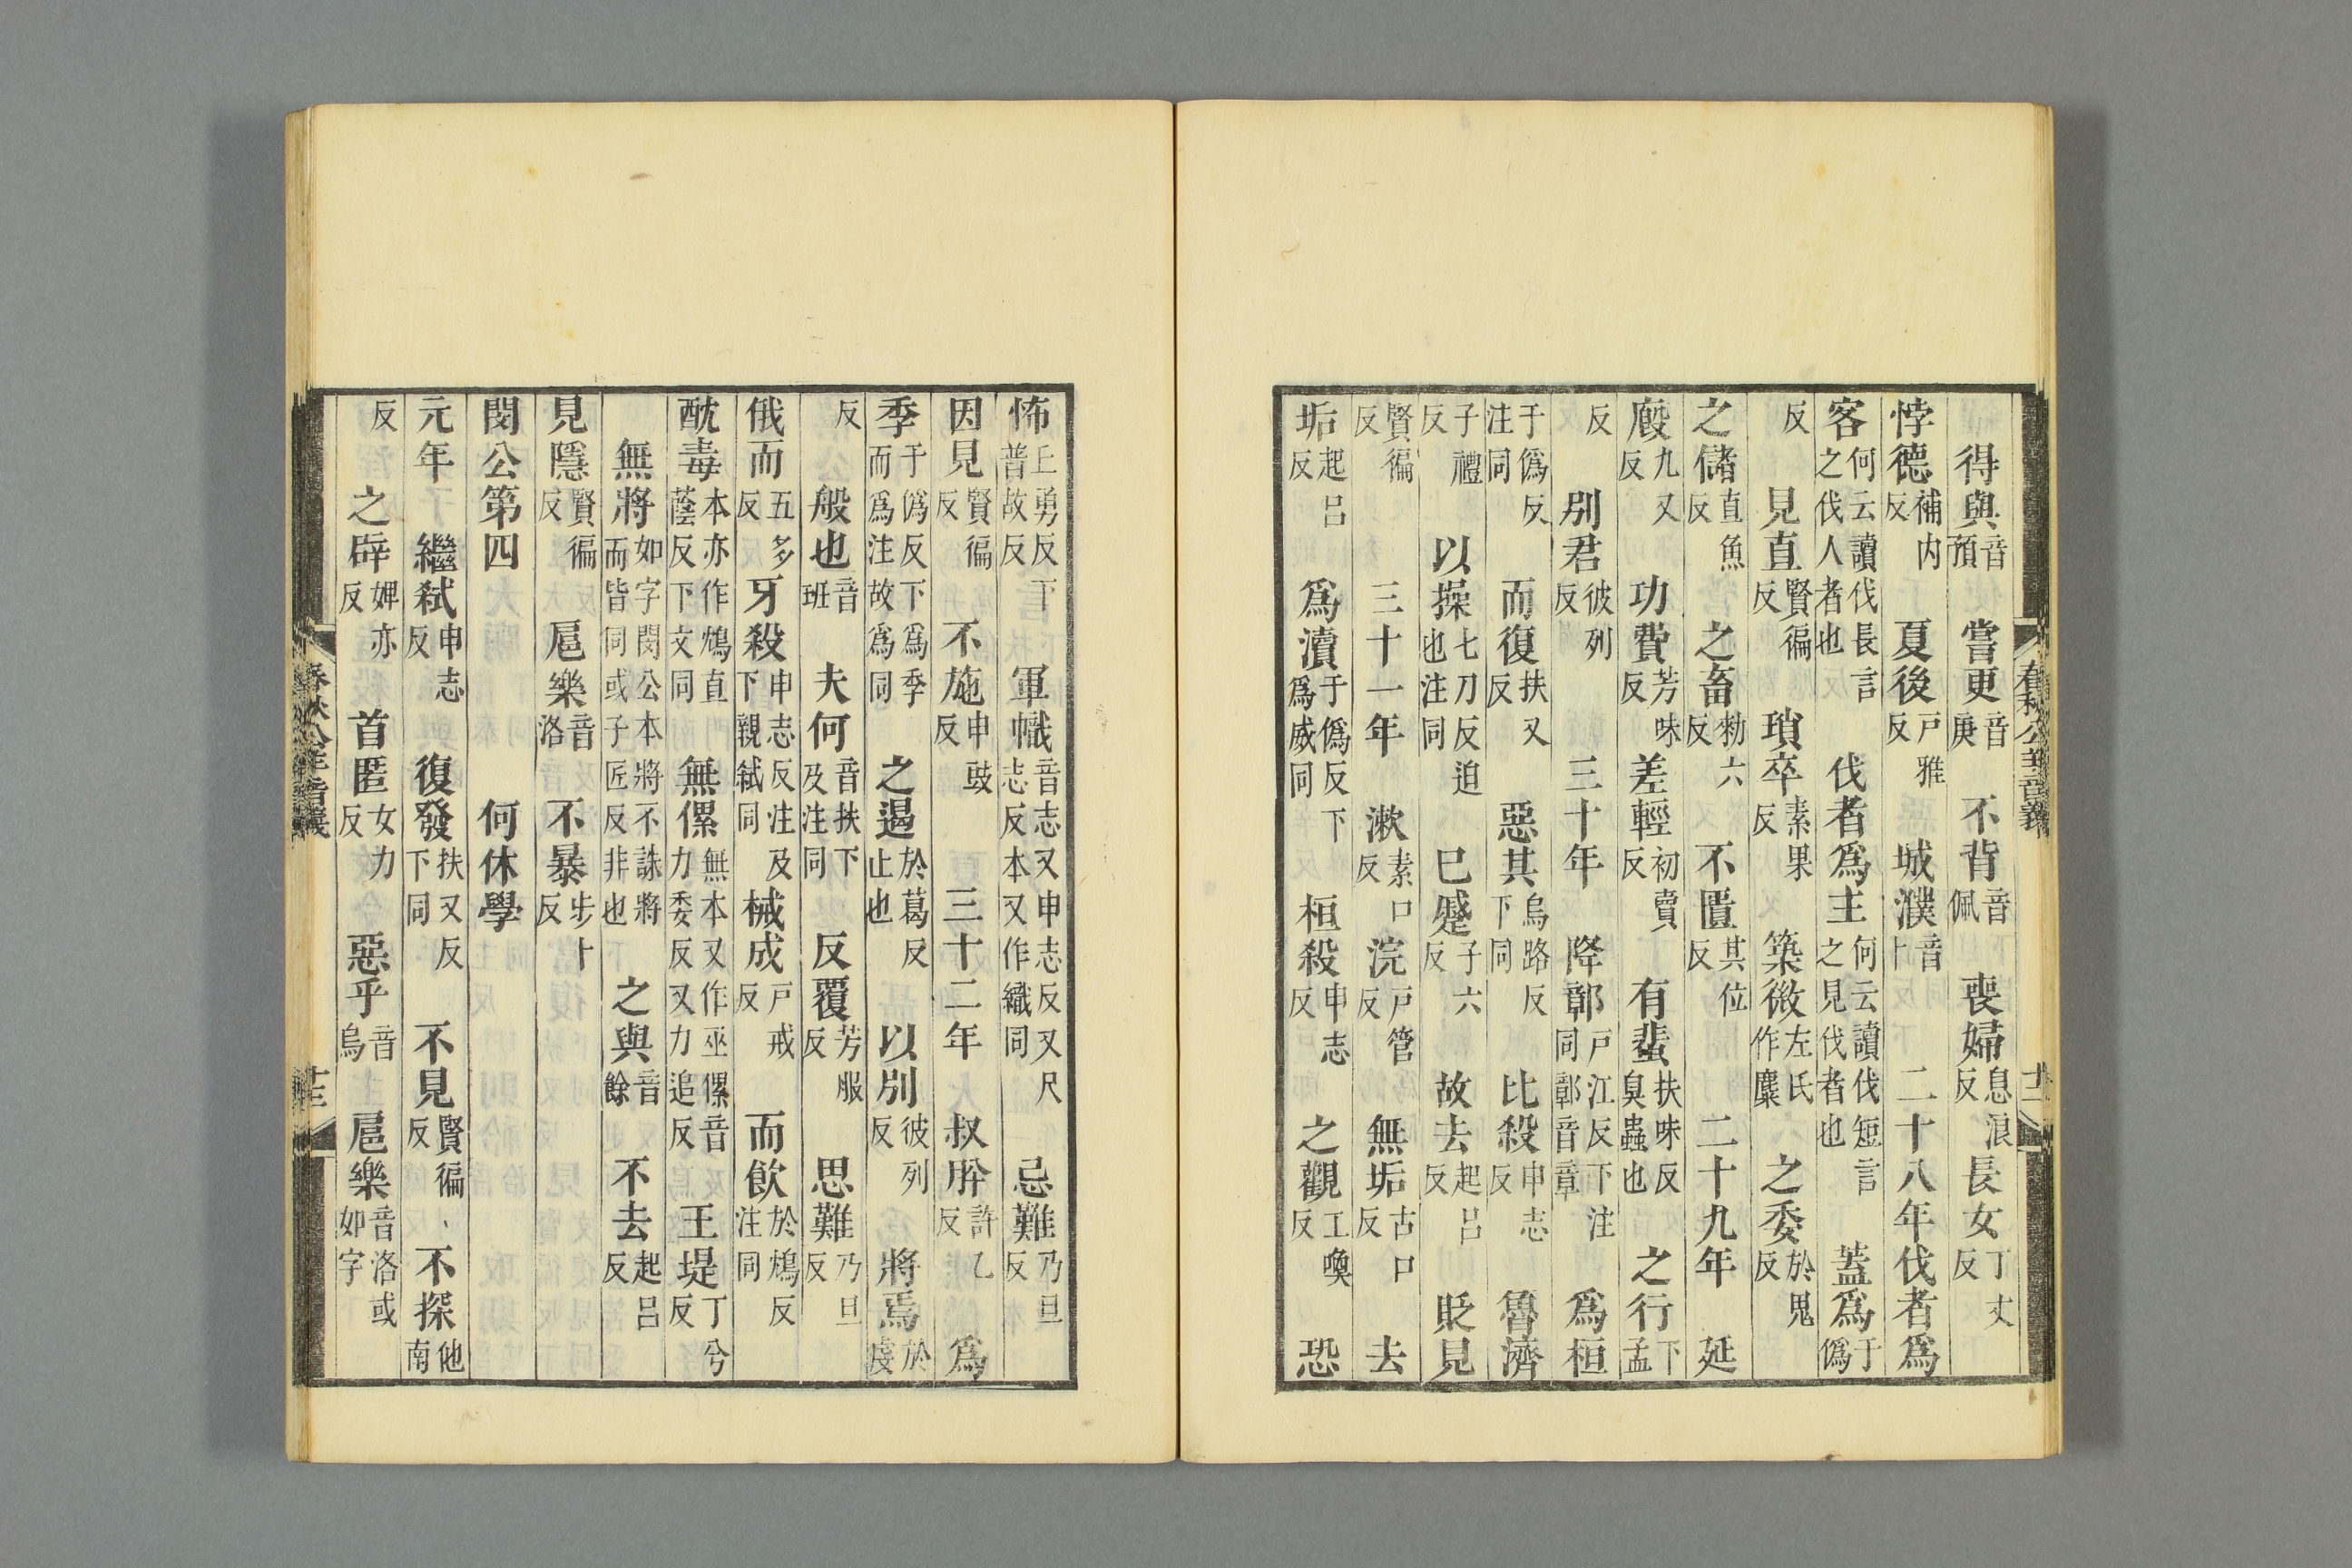 得與音預 嘗更音庚 不背音佩 喪婦息浪反 長女丁丈反
悖德補内反 夏後戸雅反 城濮音卜 二十八年伐者爲
客何云讀伐長言之伐人者也 伐者爲主何云讀伐短言之見伐者也 蓋爲于僞
反 見直賢徧反 瑣卒素果反 築微左氏作麋 之委於鬼反
之儲直魚反 之畜勑六反 不匱其位反 二十九年 延
廄九又反 功費芳味反 差輕初賣反 有蜚扶味反臭蟲也 之行下孟
反 別君彼列反 三十年 降鄣戸江反下注同鄣音章 爲桓
于僞反注同 而復扶又反 惡其烏路反下同 比殺申志反 魯濟
子禮反 以操七刀反迫也注同 已蹙子六反 故去起呂反 貶見
賢徧反 三十一年 漱素口反 浣戸管反 無垢古口反 去
垢起呂反 爲瀆于僞反下爲威同 桓殺申志反 之觀工喚反 恐
怖上勇反下普故反 軍幟音志又申志反又尺志反本又作織同 忌難乃旦反
因見賢徧反 不施申豉反 三十二年 叔肸許乙反 爲
季于僞反下爲季而爲注故爲同 之遏於葛反止也 以別彼列反 將焉於虔
反 般也音班 夫何音扶下及注同 反覆芳服反 思難乃旦反
俄而五多反 牙殺申志反注及下親弑同 械成戸戒反 而飲於鴆反注同
酖毒本亦作鴆直蔭反下文同 無傫無本又作巫傫音力委反又力追反 王堤丁兮反
無將如字閔公本將而皆同或子匠反非也不誅將 之與音餘 不去起呂反
見隱賢徧反 扈樂音洛 不暴步卜反
閔公第四 何休學
元年 繼弑申志反 復發扶又反下同 不見賢徧反 不探他南
反 之辟婢亦反 首匿女力反 惡乎音烏 扈樂音洛或如字